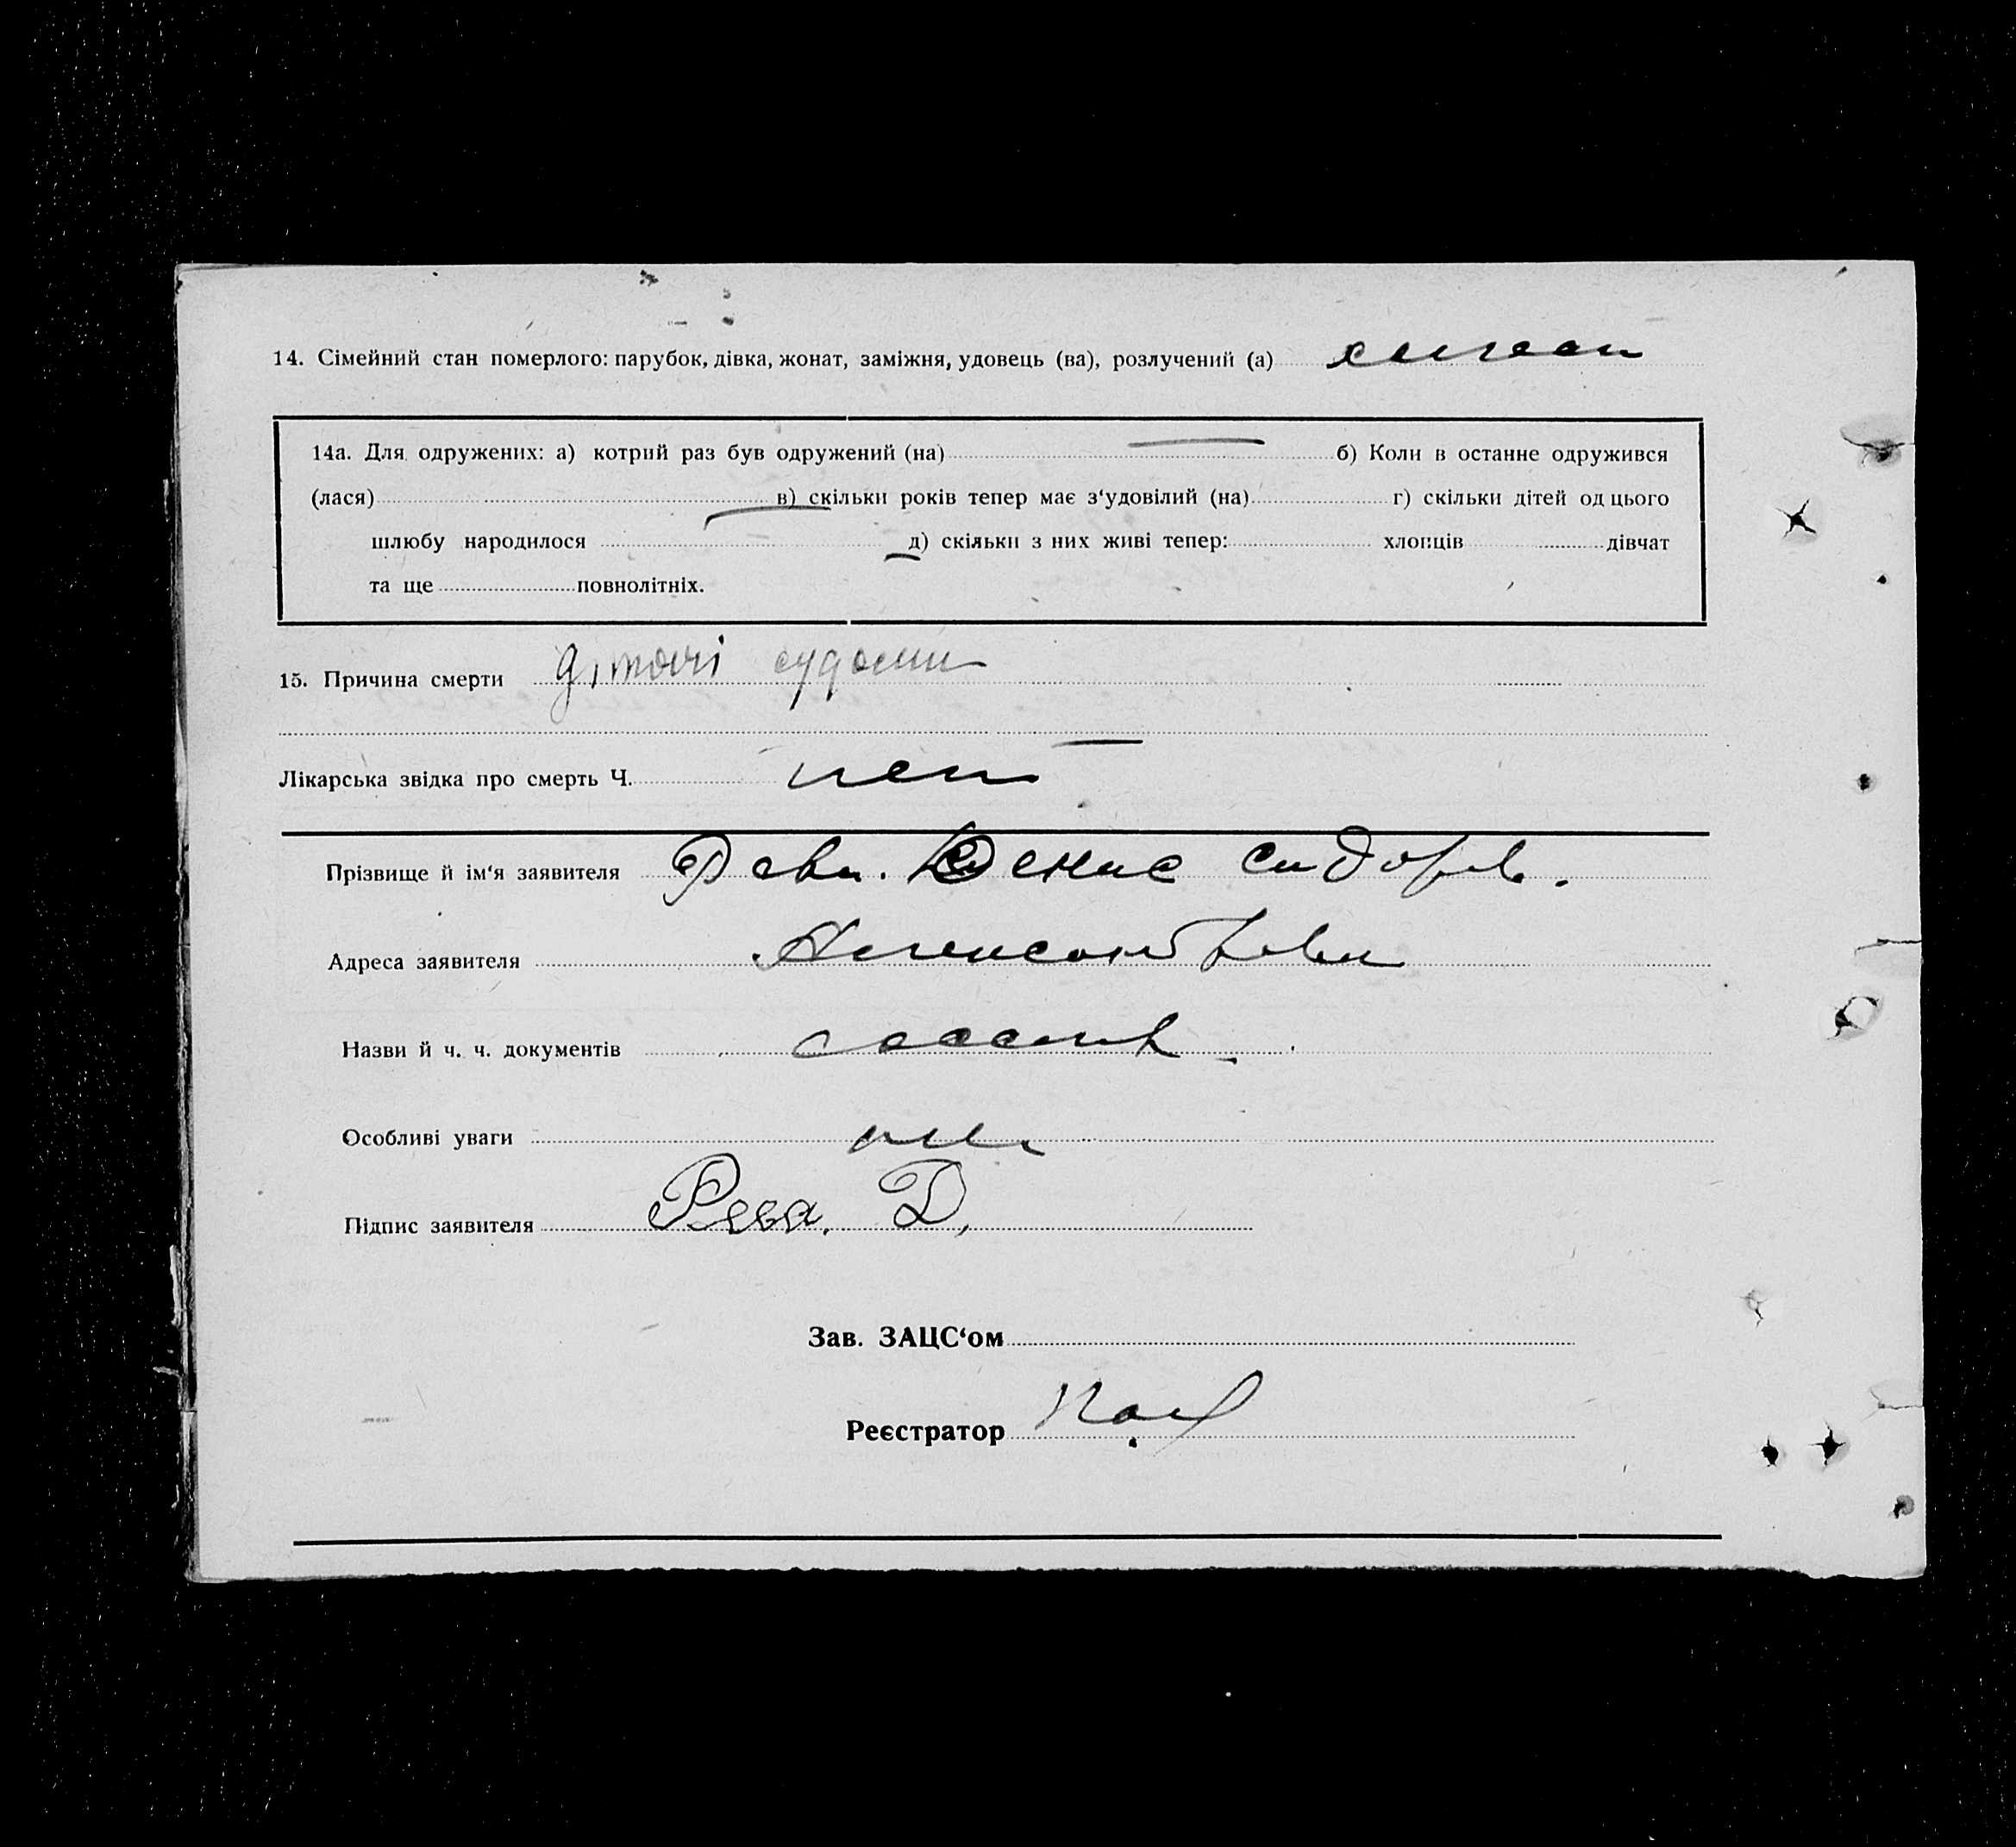 14. Сімейний стан померлого: парубок, дівка, жонат, заміжня, удовець (ва), розлучений (а)
14а. Для одружених: а) котрий раз був одружений (на) б) Коли в останне одружився
(лася) в) скільки років тепер має з‘удовілий (на) г) скільки дітей од цього
шлюбу народилося д) скільки з них живі тепер: хлопців дівчат
та ще повнолітніх.
15. Причина смерти дітячі судоми
Лікарська звідка про смерть Ч. нет
Прізвище й ім‘я заявителя Рева. Денис Сидоров.
Адреса заявителя
Назви й ч. ч. документів
Особливі уваги
Підпис заявителя Рева. Д,
Зав. ЗАЦС‘ом
Реєстратор